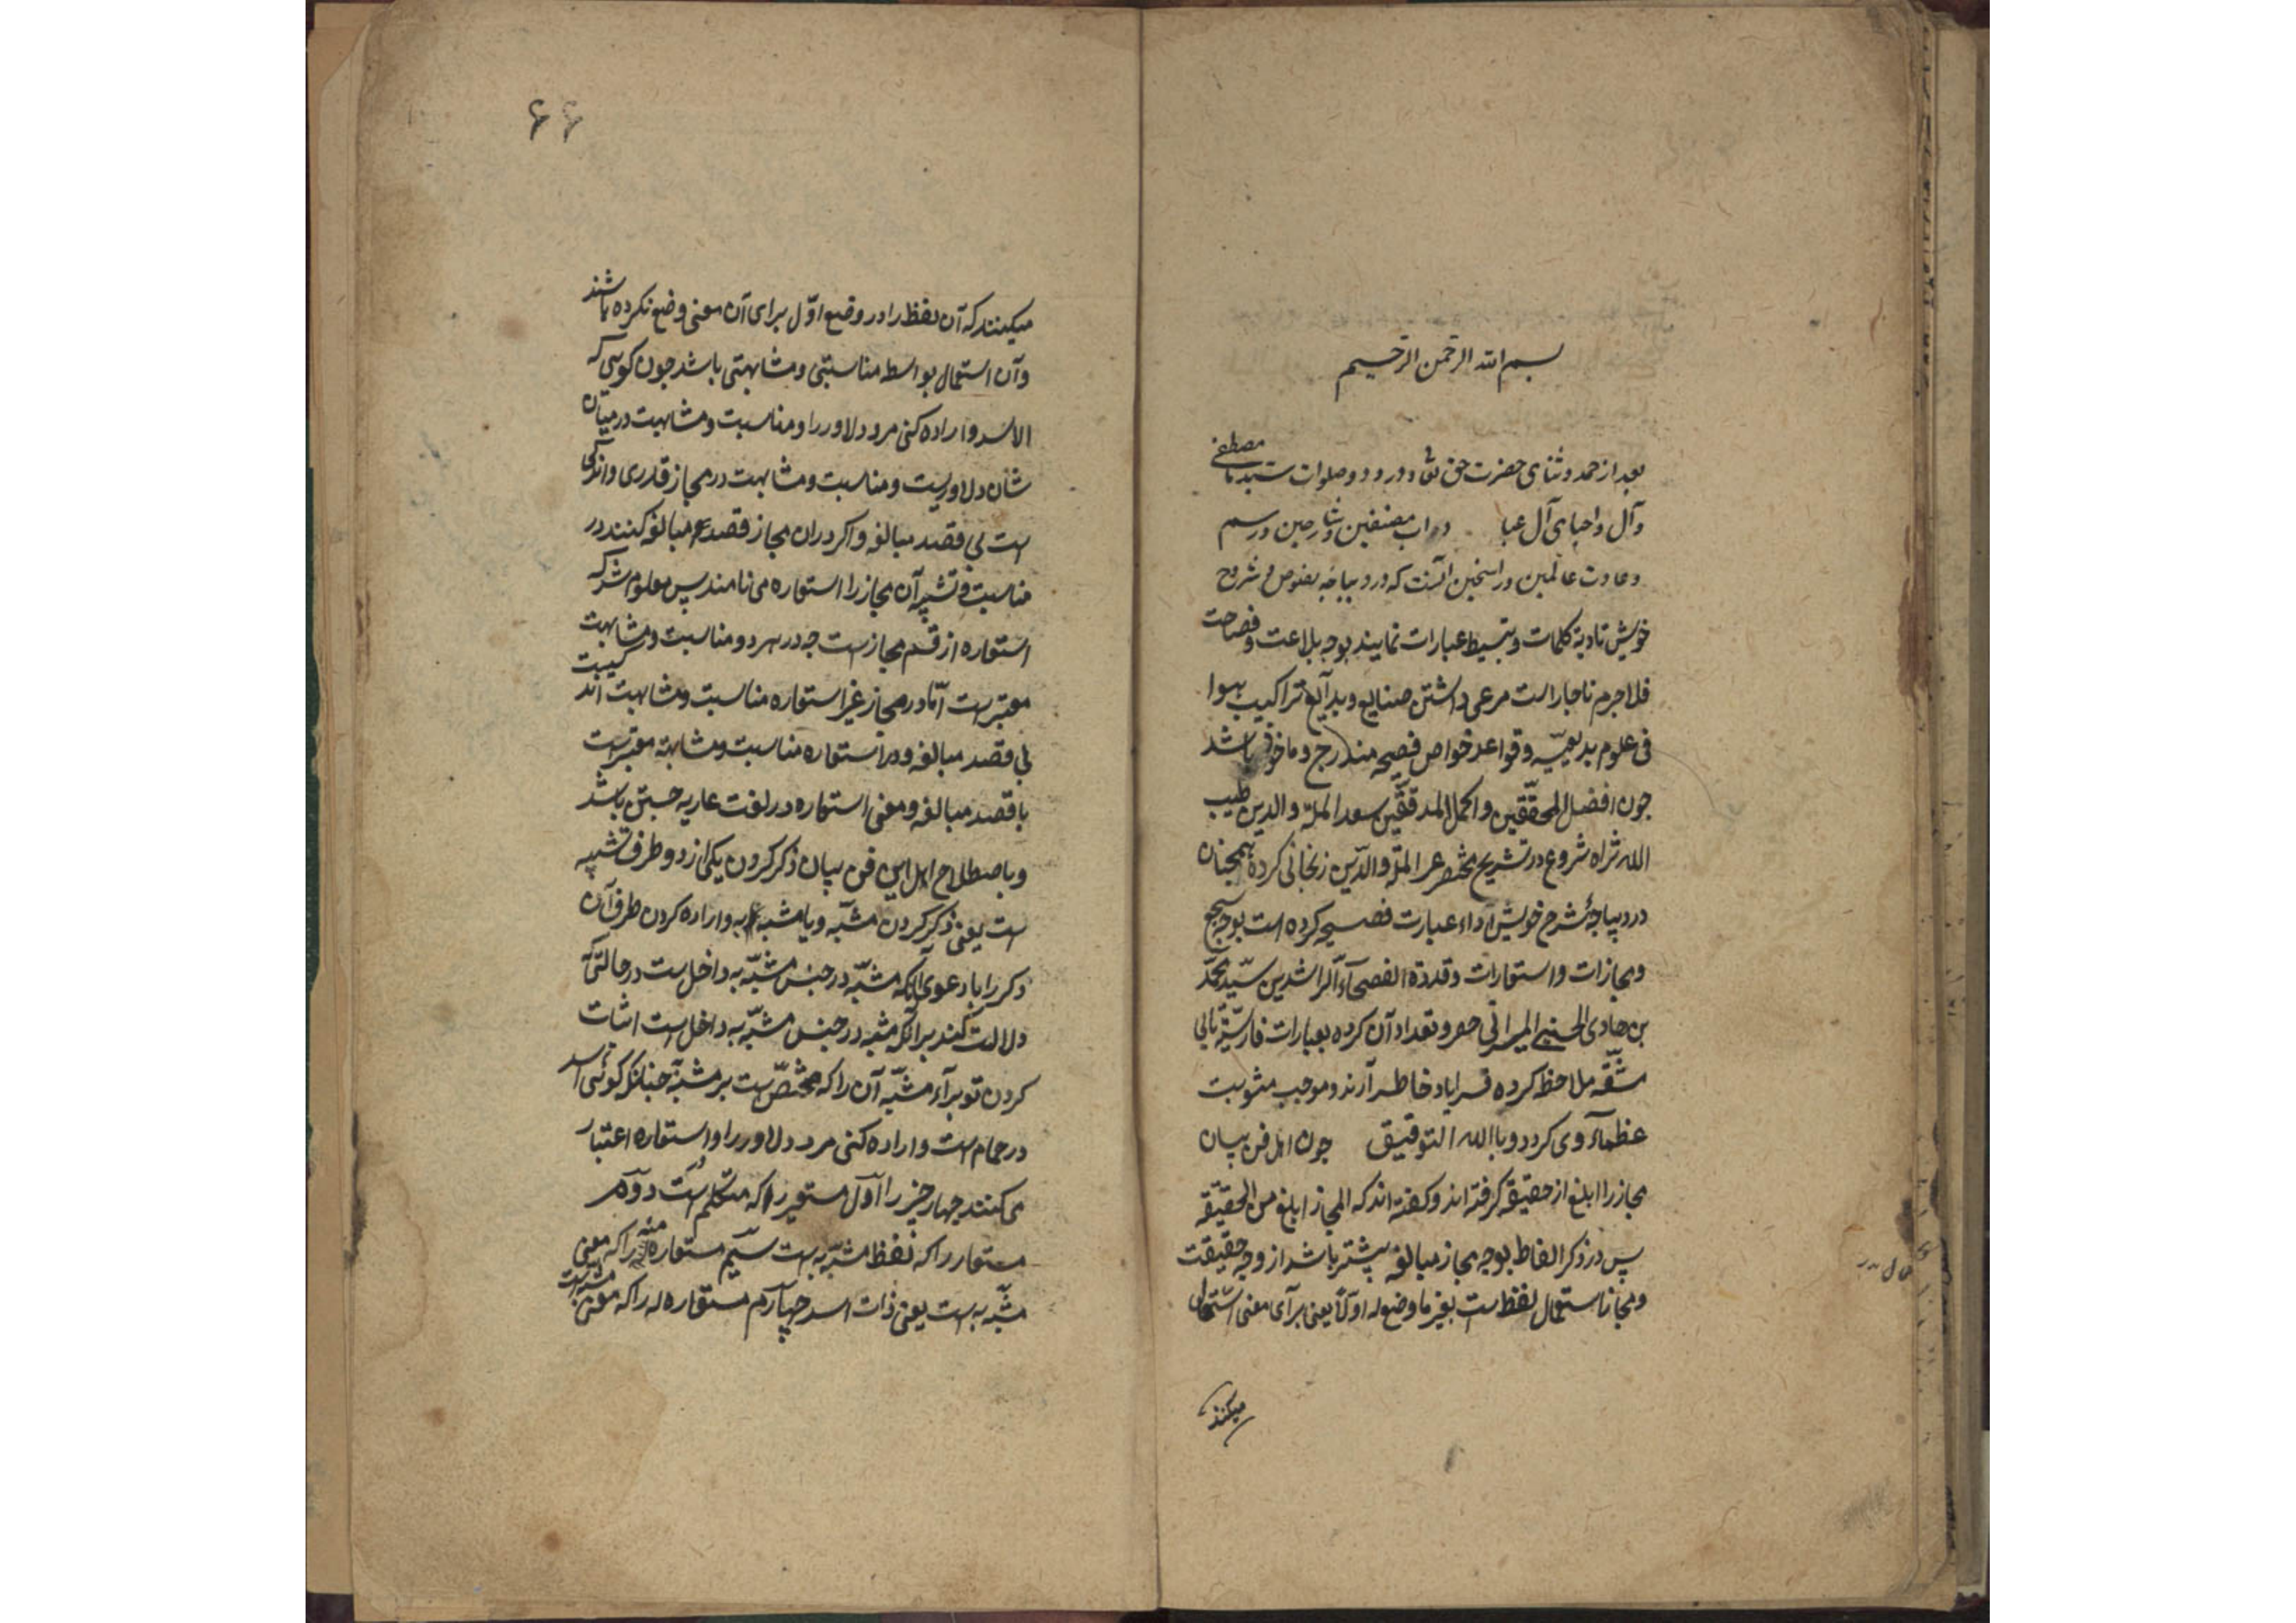 بسم الله الرحمن الرحیم
بعد از حمد و ثنای حضرت حق تعالی و درود و صلوات سید ما مصطفی
و آل و احبای آل عبا داب مصنفین و شارحین و رسم
و عادت عالمین و راسخین آنست که در دیباجه بفنوص و شروح
خویش تادیة کلمات و تبسیط عبارات نمایند بوجه بلاغت و فصاحت
فلاجرم ناچار است مرعی داشتن صنایع و بدایع تراکیب
فی علوم بدیعیه و قواعد خواص فصیحه مندرج و ماخوذ باشد
جون افضل المحققین و اکمل المدققین سعد الملة والدین طیب
الله ثراه شروع در تشریح مختصر عز الملة والدین زنجانی کرده همچنان
در دیباجهٔ شرح خویش اداء عبارت فصیحه کرده است بوجه سجع
و مجازات و استعارات و قدوة الفصحاء الراشدین سید محمد
بن هادی الحسینی حصر و تعداد آن کرده بعبارات فارسیة
مشقة ملاحظ کرده خاطر آرند و موجب مثوبت
عظماء وی کردد و بالله التوفیق جون اهل فن بیان
مجاز را ابلغ از حقیقة کرفته اند و کفته اند که المجاز ابلغ من الحقیقة
پس در ذکر الفاظ بوجه مجاز مبالغه پیشتر باشد از وجه حقیقت
و مجاز استعمال لفظ است بغیر ما وضع له اولاً یعنی برای معنی استعمال
میکنند
۶۶
میکنند که آن لفظ را در وضع اول برای آن معنی وضع نکرده باشند
و آن استعمال بواسطه مناسبتی و مشابهتی باشد جون کویی که
الاسد و اراده کنی مرد دلاور را و مناسبت و مشابهت در میان
شان دلاوریست و مناسبت و مشابهت در مجاز قدری و اندکی
است بی قصد مبالغه و اکر در ان مجاز قصد مبالغه کنند در
مناسبت و تشبیه آن مجاز را استعاره می نامند پس معلوم شد که
استعاره از قسم مجاز است جه در هر دو مناسبت و مشابهت
معتبر است امّا در مجاز غیر استعاره مناسبت و مشابهت اندکیست
بی قصد مبالغه و در استعاره مناسبت و مشابهة معتبرست
با قصد مبالغه و معنی استعاره در لغت عاریه جستن باشد
و باصطلاح اهل این فن بیان ذکر کردن یکی از دو طرف تشبیه
است یعنی ذکر کردن مشبه و یا مشبه به و اراده کردن طرف آن
دکر را با دعوی آنکه مشبّه در جنس مشبّه به داخل ست در حالتی که
دلالت کند بر آنکه مشبه در جنس مشبّه به داخل است اثبات
کردن تو براء مشبّه آن را که مختصّ ست بر مشبه به جنانکه کوئی اسد
در حمام است و اراده کنی مرد دلاور را و استعاره اعتبار
می کنند جهار جیز را اول مستعیر را که متکلم است دوم
مستعار را که لفظ مشبّه به ست سیم مستعار منه را که معنی
مشبّه به ست یعنی ذات اسد جهارم مستعار له را که معنی مشبه است